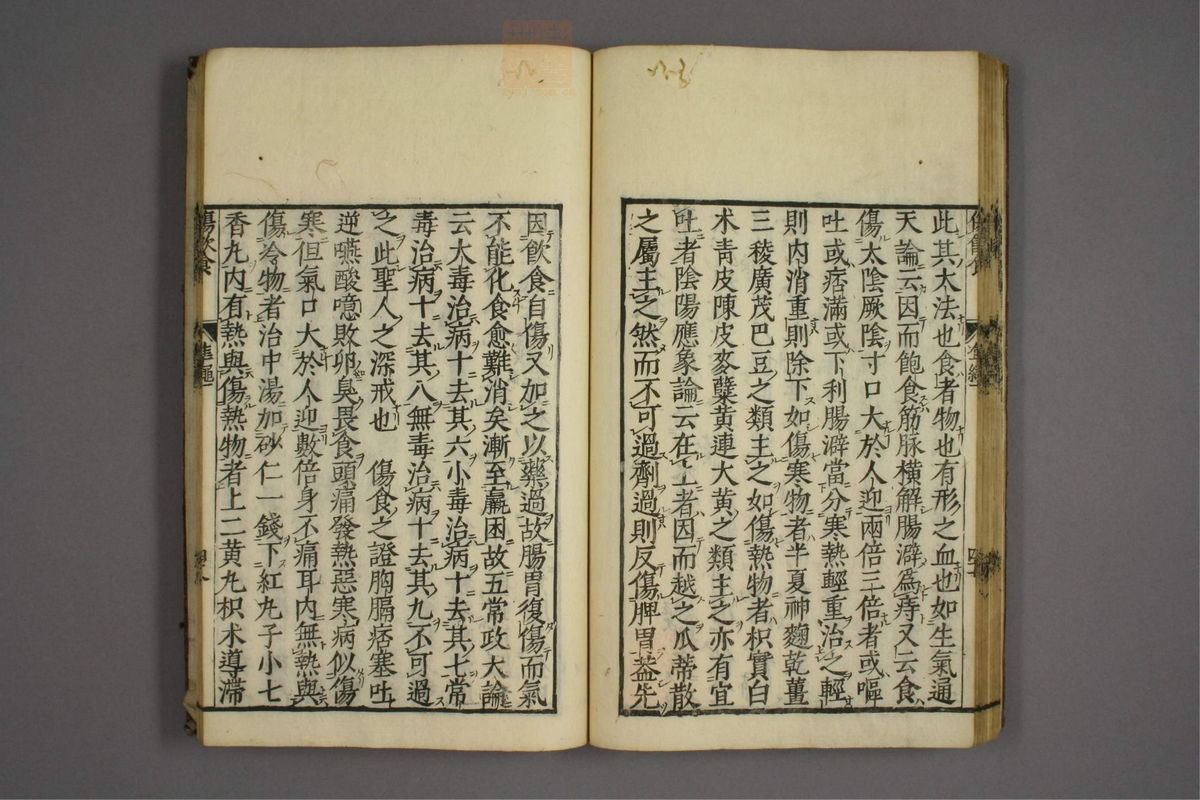 此其大法也食者物也有形之血也如生氣通
天論云因而飽食筋脉橫解腸澼爲痔又云食
傷太陰厥陰寸口大於人迎兩倍三倍者或嘔
吐或痞滿或下利腸澼當分寒熱輕重治之輕
則内消重則除下如傷寒物者半夏神麴乾薑
三稜廣茂巴豆之類主之如傷熱物者枳實白
术青皮陳皮麥蘗黄連大黄之類主之亦有宜
吐者陰陽應象論云在上者因而越之瓜蒂散
之屬主之然而不可過劑過則反傷脾胃蓋先
因飲食自傷又加之以藥過故腸胃復傷而氣
不能化食愈難消矣漸至羸困故五常政大論
云大毒治病十去其六小毒治病十去其七常
毒治病十去其八無毒治病十去其九不可過
之此聖人之深戒也 傷食之證胸膈痞塞吐
逆嚥酸噫敗卵臭畏食頭痛發熱惡寒病似傷
寒但氣口大於人迎數倍身不痛耳内無熱與
傷冷物者治中湯加砂仁一錢下紅丸子小七
香丸内有熱與傷熱物者上二黄丸枳术導滯
傷飲食